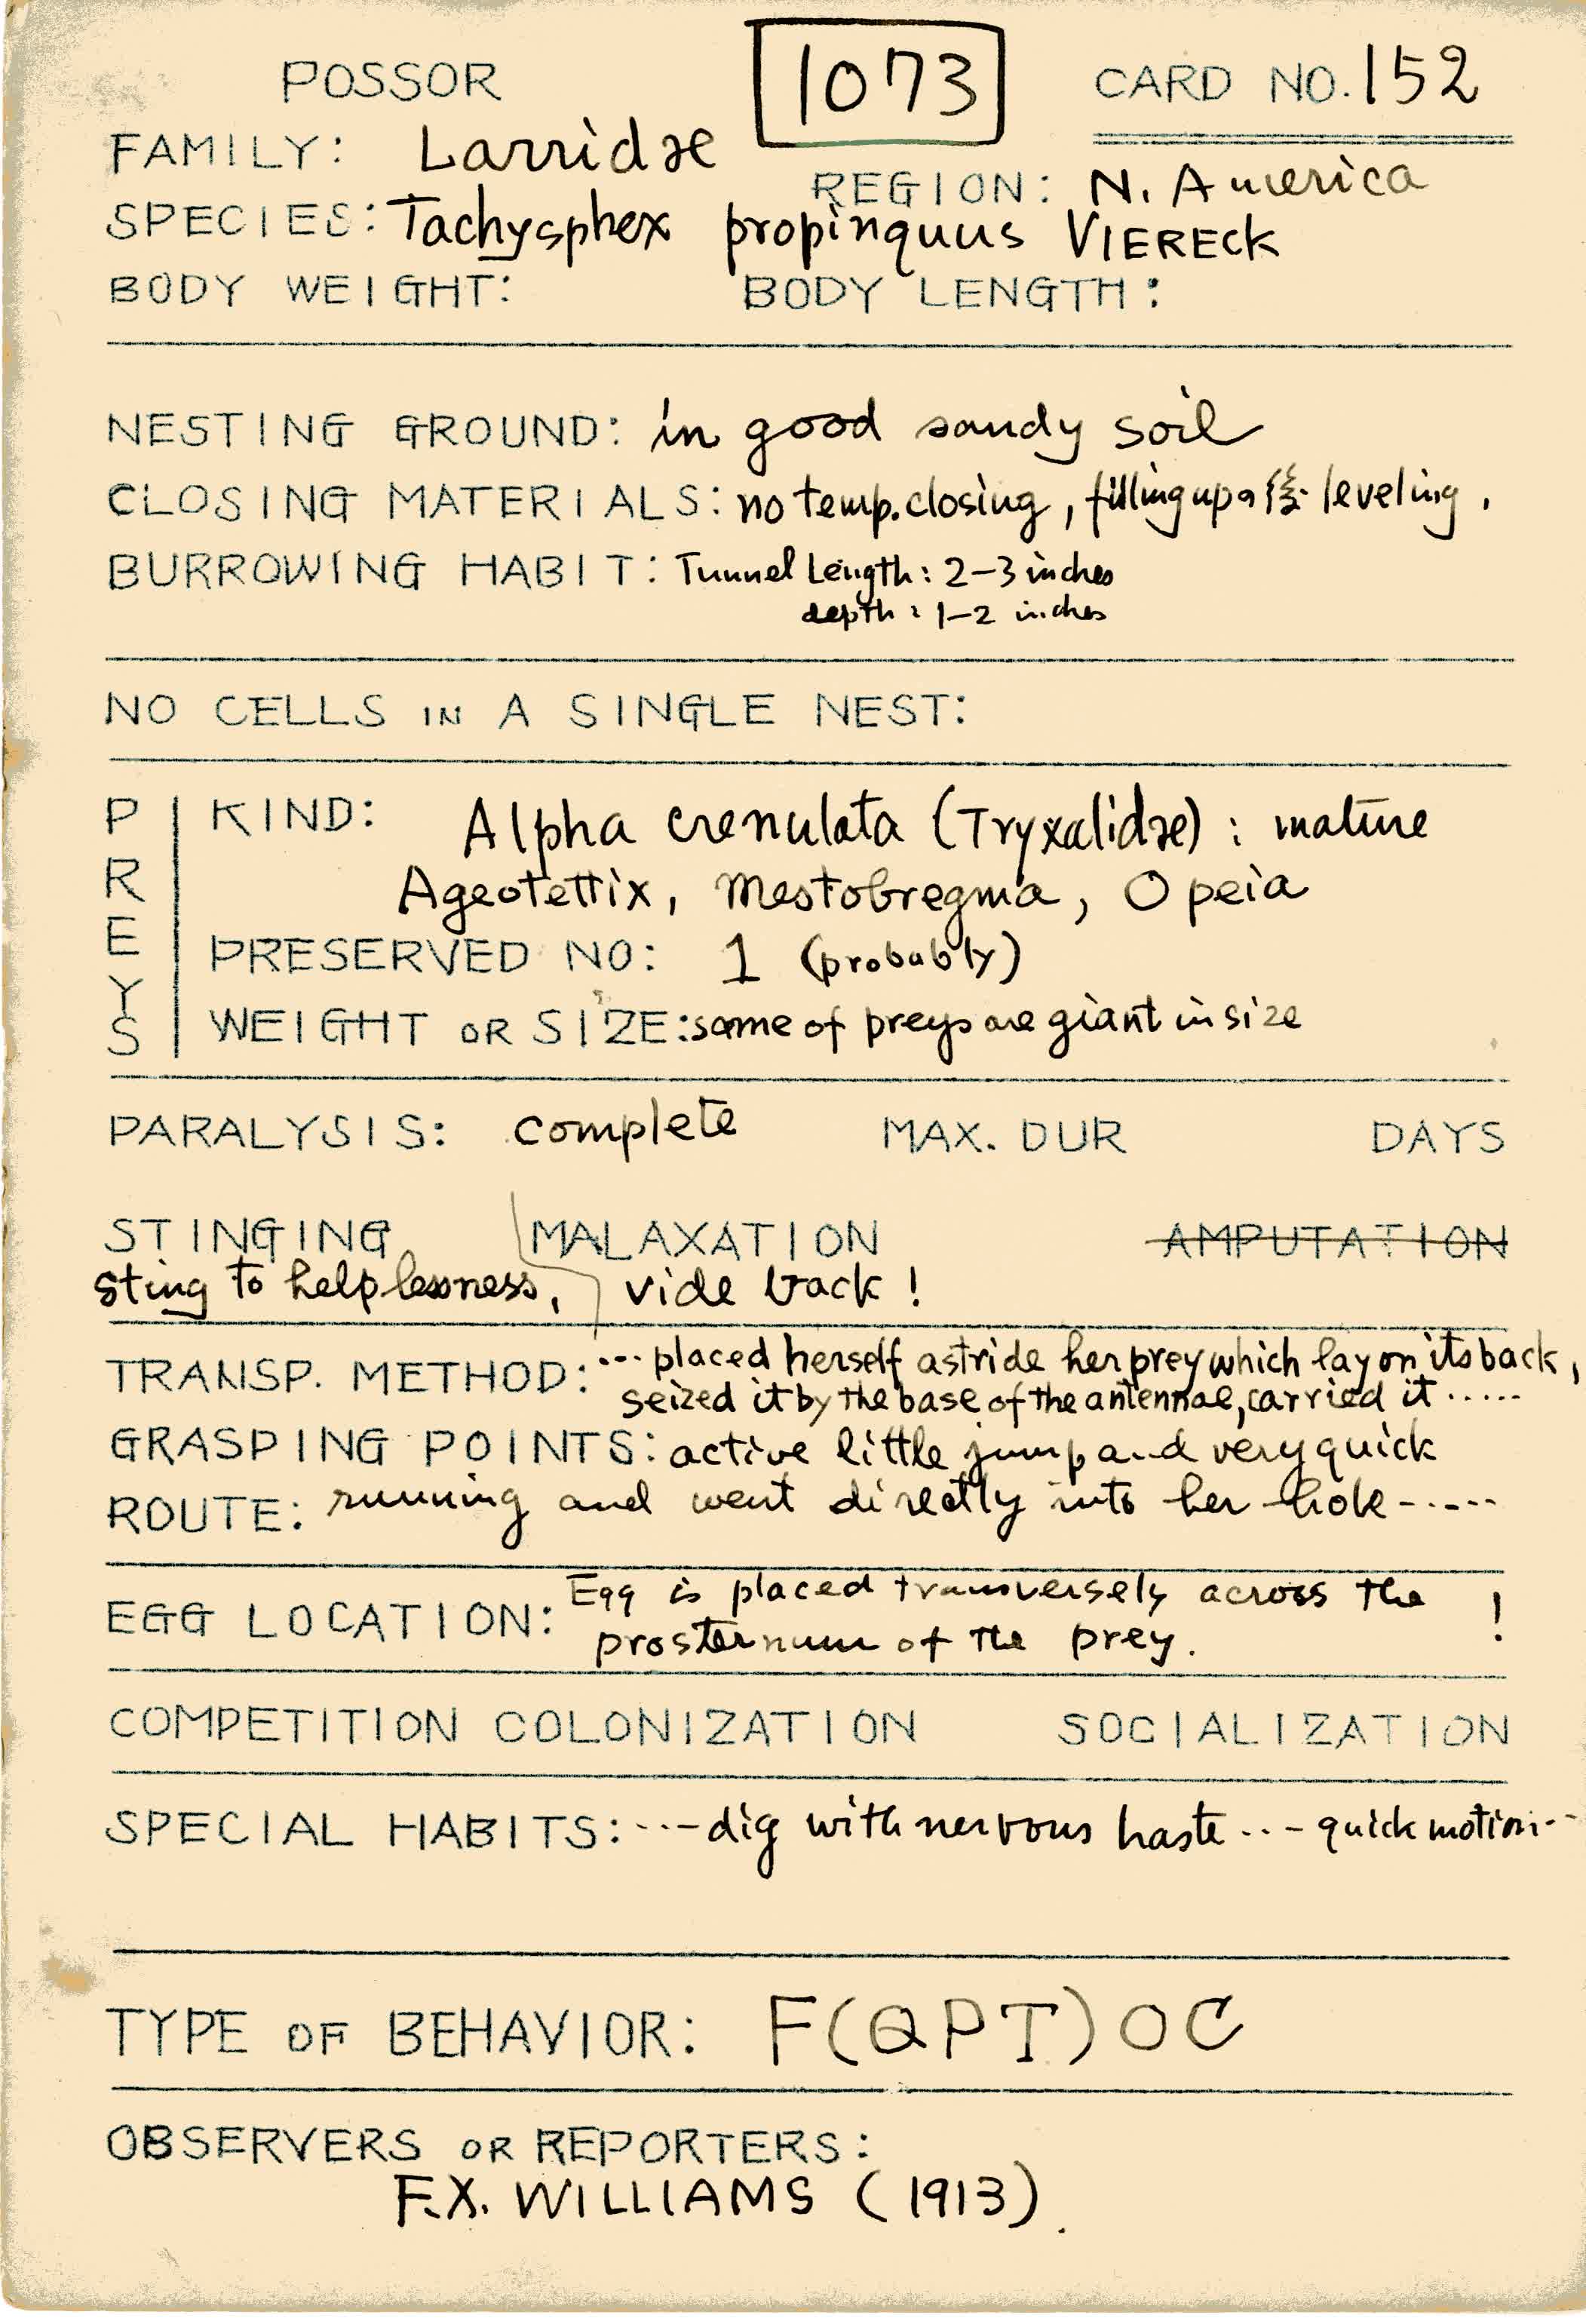 POSSOR
1073
CARD NO. 152
FAMILY: Larridae
REGION: N. America
SPECIES: Tachysphex propinquus VIERECK
BODY WEIGHT: BODY LENGTH:
NESTING GROUND: in good sandy soil
CLOSING MATERIALS: no temp. closing, filling up の後 leveling.
BURROWING HABIT: Tunnel Length: 2-3 inches
depth: 1-2 inches
NO CELLS IN A SINGLE NEST:
PREYS
KIND: Alpha crenulata (Tryxalidae): mature
Ageotettix, Mestobregma, Opeia
PRESERVED NO: 1 (probably)
WEIGHT OR SIZE: some of preys are giant in size
PARALYSIS: complete MAX. DUR DAYS
STINGING MALAXATION AMPUTATION
sting to helplessness, vide back!
TRANSP. METHOD: ... placed herself astride her prey which lay on its back,
seized it by the base of the antennae, carried it .....
GRASPING POINTS: active little jump and very quick
ROUTE: running and went directly into her hole -....
EGG LOCATION: Egg is placed transversely across the
prosternum of the prey. !
COMPETITION COLONIZATION SOCIALIZATION
SPECIAL HABITS: ... dig with nervous haste ... quick motion..
TYPE OF BEHAVIOR: F(QPT)OC
OBSERVERS OR REPORTERS:
F.X. WILLIAMS (1913).